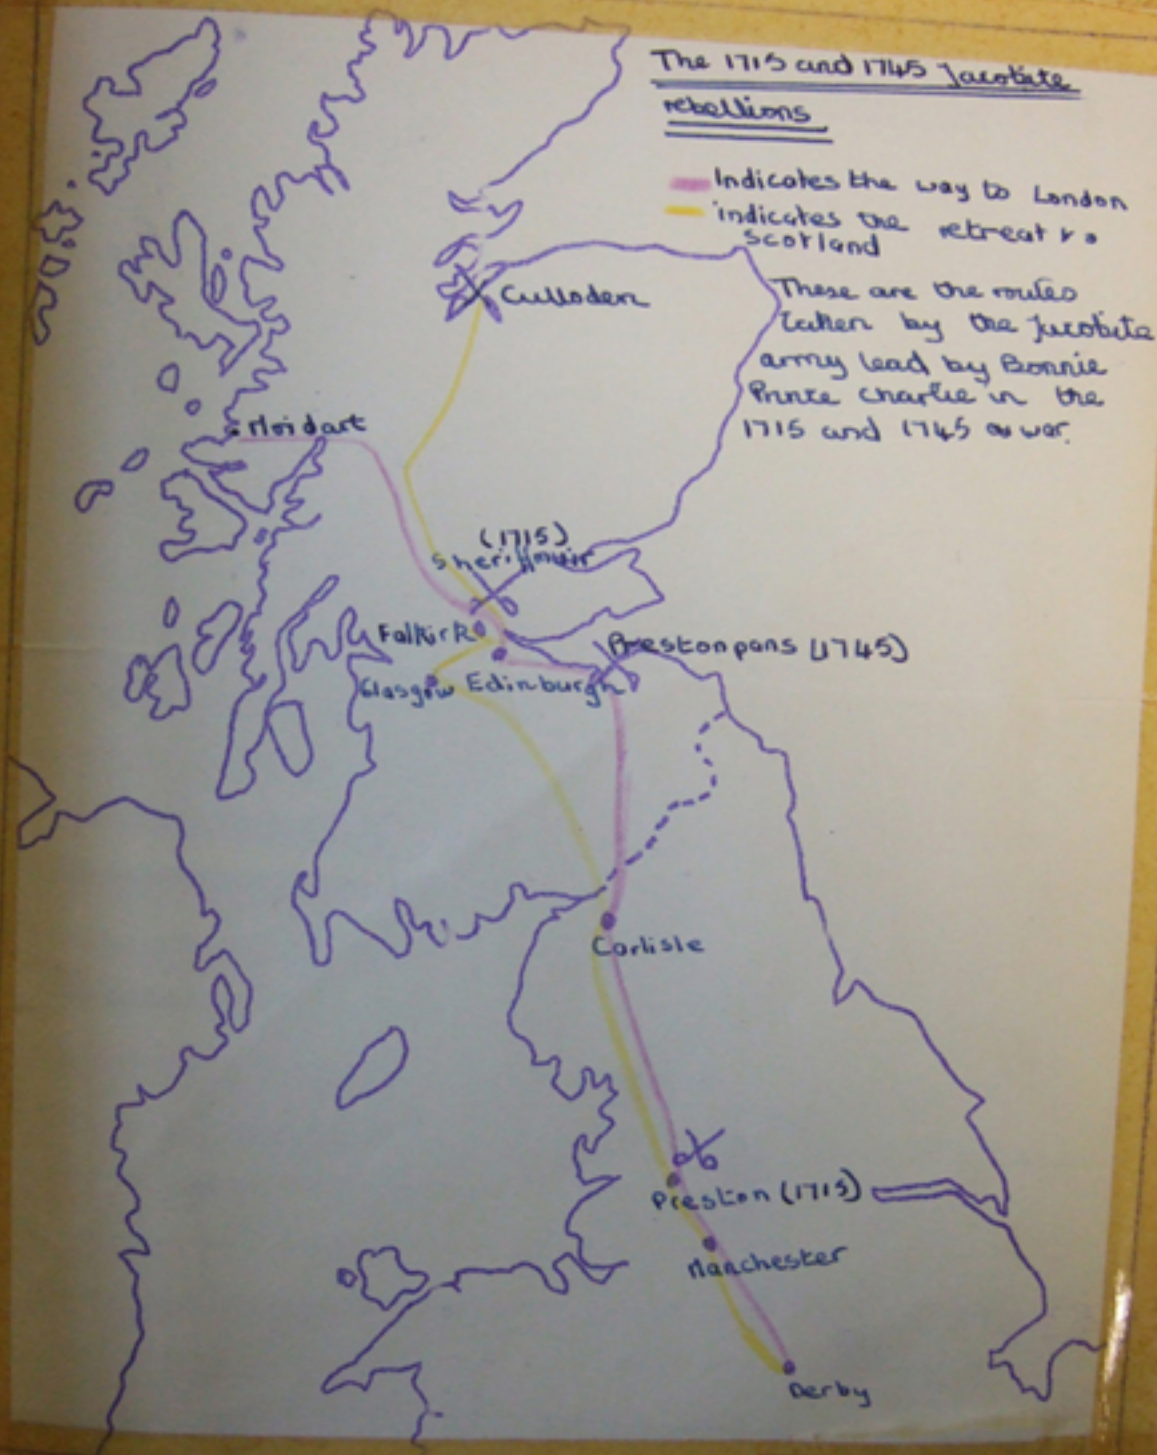 The 1715 and 1745 Jacobite
rebellions
Indicates the way to London
indicates the retreat to
Scotland
These are the routes
taken by the Jacobite
army lead by Bonnie
Prince Charlie in the
1715 and 1745 war.
Culloden
Moidart
(1715)
Sheriffmuir
Falkirk
Prestonpans (1745)
Glasgow Edinburgh
Carlisle
Preston (1715)
Manchester
Derby